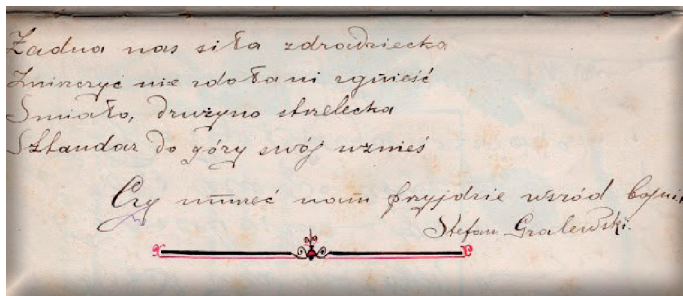 Żadna nas siła zdradziecka
Zniszczyć nie zdoła ni zgnieść
Śmiało, drużyno strzelecka
Sztandar do góry swój wznieś
Czy umrzeć nam przyjdzie wśród
Stefan Gralewski.